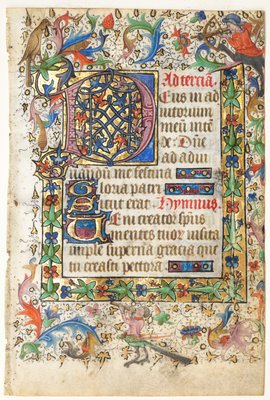 Ad terciā.
Eus in ad
iutorium
meū inte
de. Dñe
ad adiu
uandū me festina
Gloria patri
Sicut erat. Hymnus.
Ueni creator spūs
mentes tuor uisita
imple superna gracia que
tu creasti pectora.